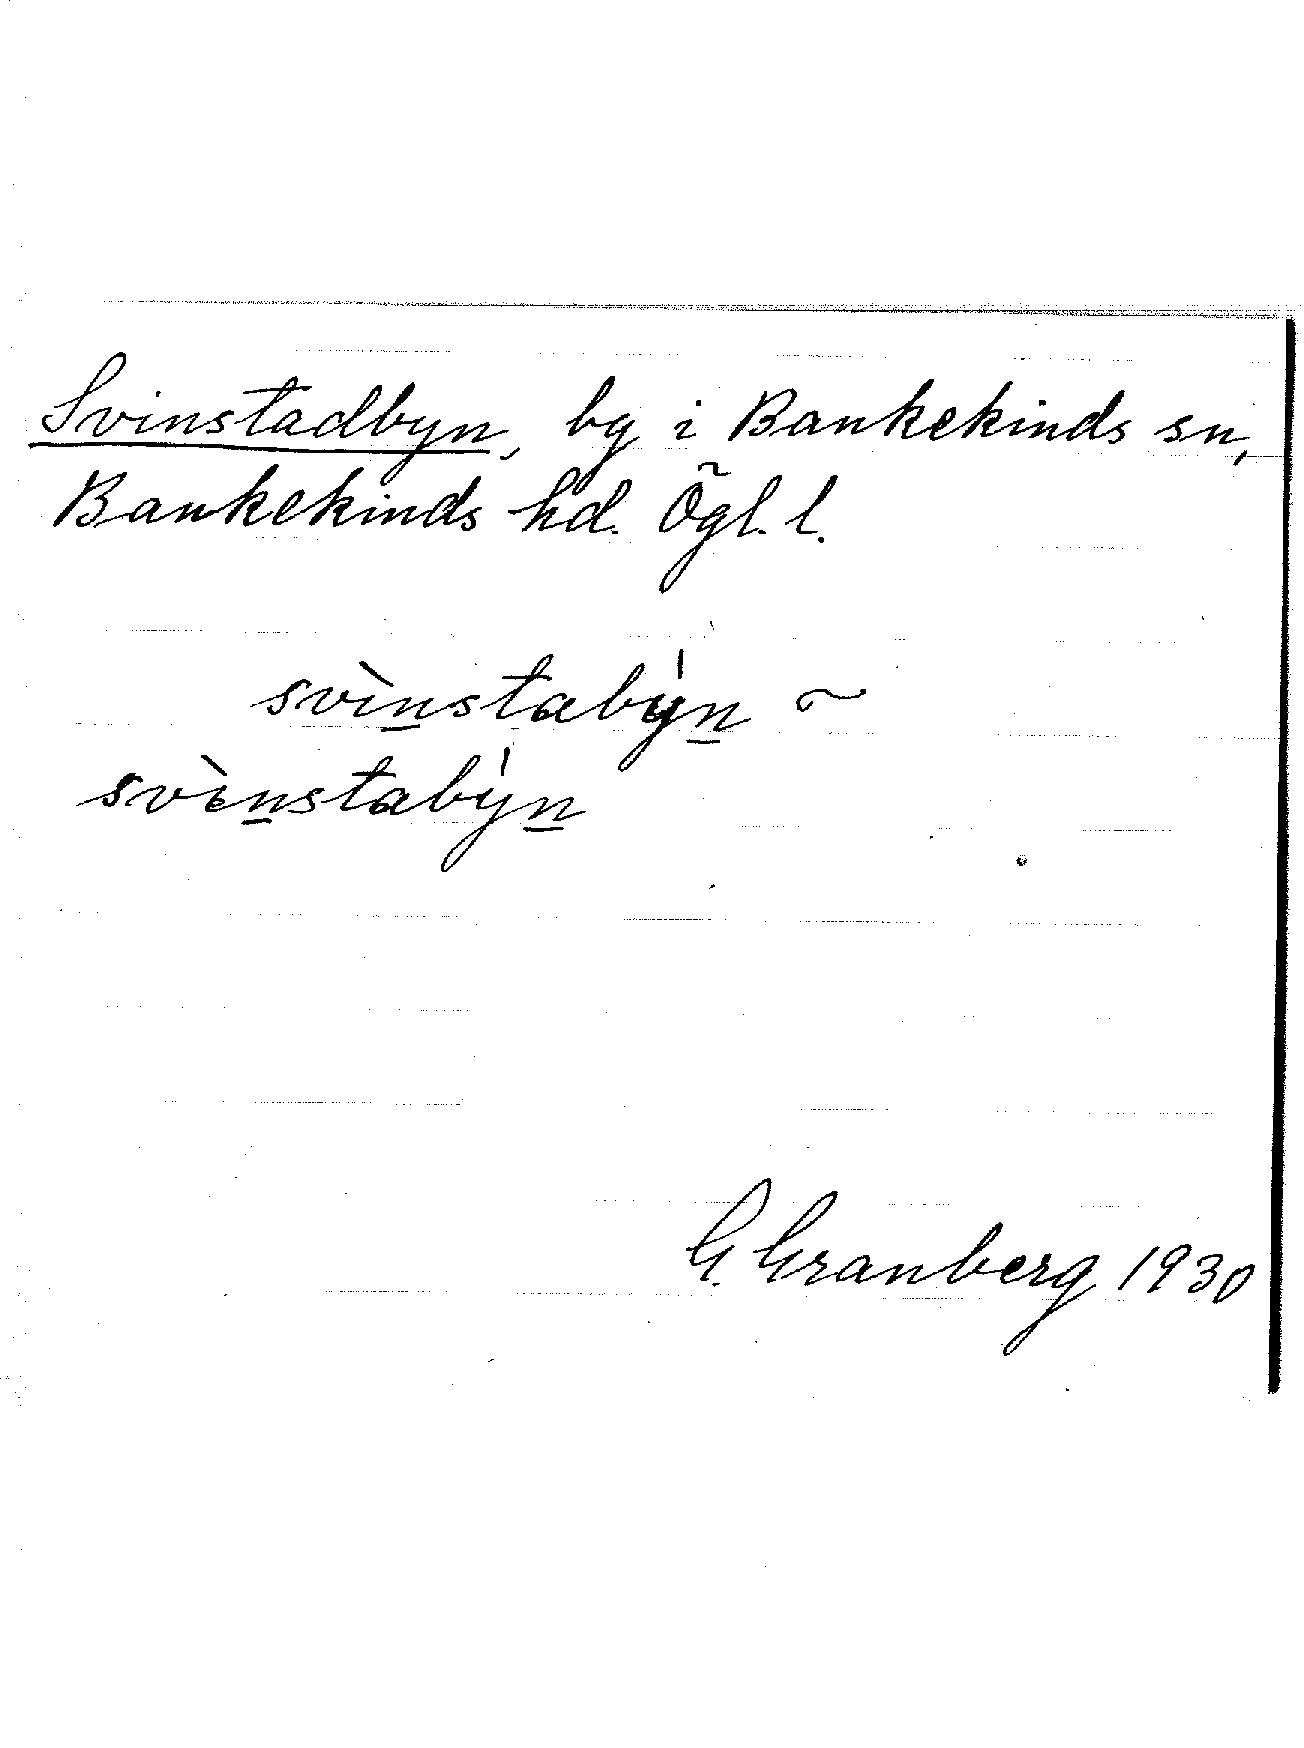 Svinstadbyn, bg i Bankekinds sn,
Bankekinds hd. Ögl. l.
svìn̲stabýn̲ ~
svìn̲stabýn̲
G. Granberg 1930